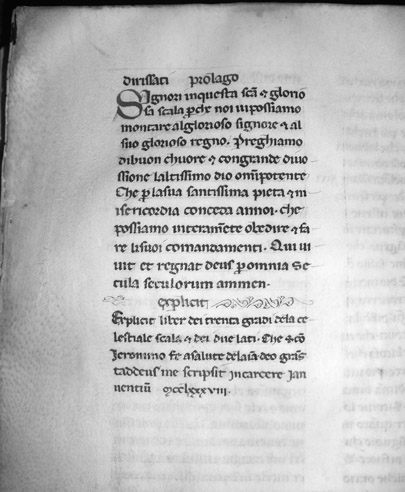 dirissati prolago
Signori in questa scā ⁊ glorio
sa scala pche noi ui possiamo
montare al glorioso signore ⁊ al
suo glorioso regno. Preghiamo
di buon chuore ⁊ con grande diuo
ssione laltissimo dio omipotente
Che p la sua santissima pieta ⁊ m
isericordia conceta a nnoi. che
possiamo interamēte obedire ⁊ fa
re li suoi comandamenti. Qui ui
uit et regnat deus p omnia se
cula seculorum ammen.
explicit
Explicit liber dei trenta gradi dela ce
lestiale scala ⁊ dei due lati. Che scō
Jeronimo fe a salute deo grās
taddeus me scripsit in carcere Jan
nentiū mcclxxxviii.